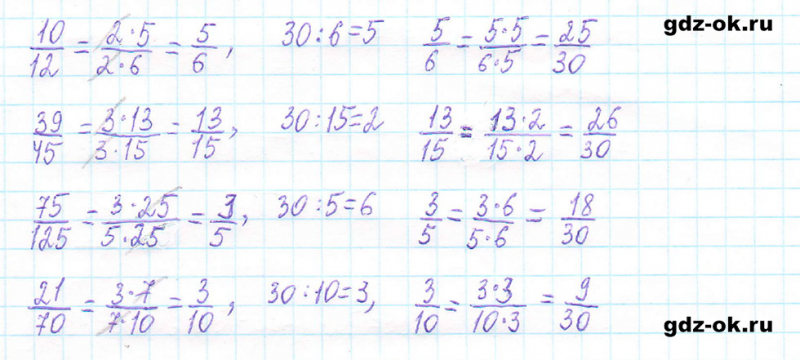 gdz-ok.ru
10/12 = 2·5/2·6 = 5/6, 30:6=5 5/6 = 5·5/6·5 = 25/30
39/45 = 3·13/3·15 = 13/15, 30:15=2 13/15 = 13·2/15·2 = 26/30
75/125 = 3·25/5·25 = 3/5, 30:5=6 3/5 = 3·6/5·6 = 18/30
21/70 = 3·7/7·10 = 3/10, 30:10=3, 3/10 = 3·3/10·3 = 9/30
gdz-ok.ru